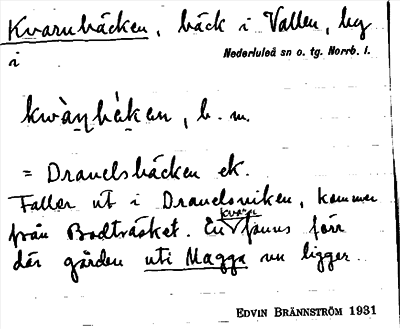 Kvarnbäcken, bäck i Vallen, by
i
Nederluleå sn o. tg. Norrb. l.
kwàṇbä̀kan, b. m.
= Dravelsbäcken ek.
Faller ut i Dravelsviken, kommer
kvarn
från Bodträsket. En fanns förr
där gården uti Magga nu ligger.
EDVIN BRÄNNSTRÖM 1931